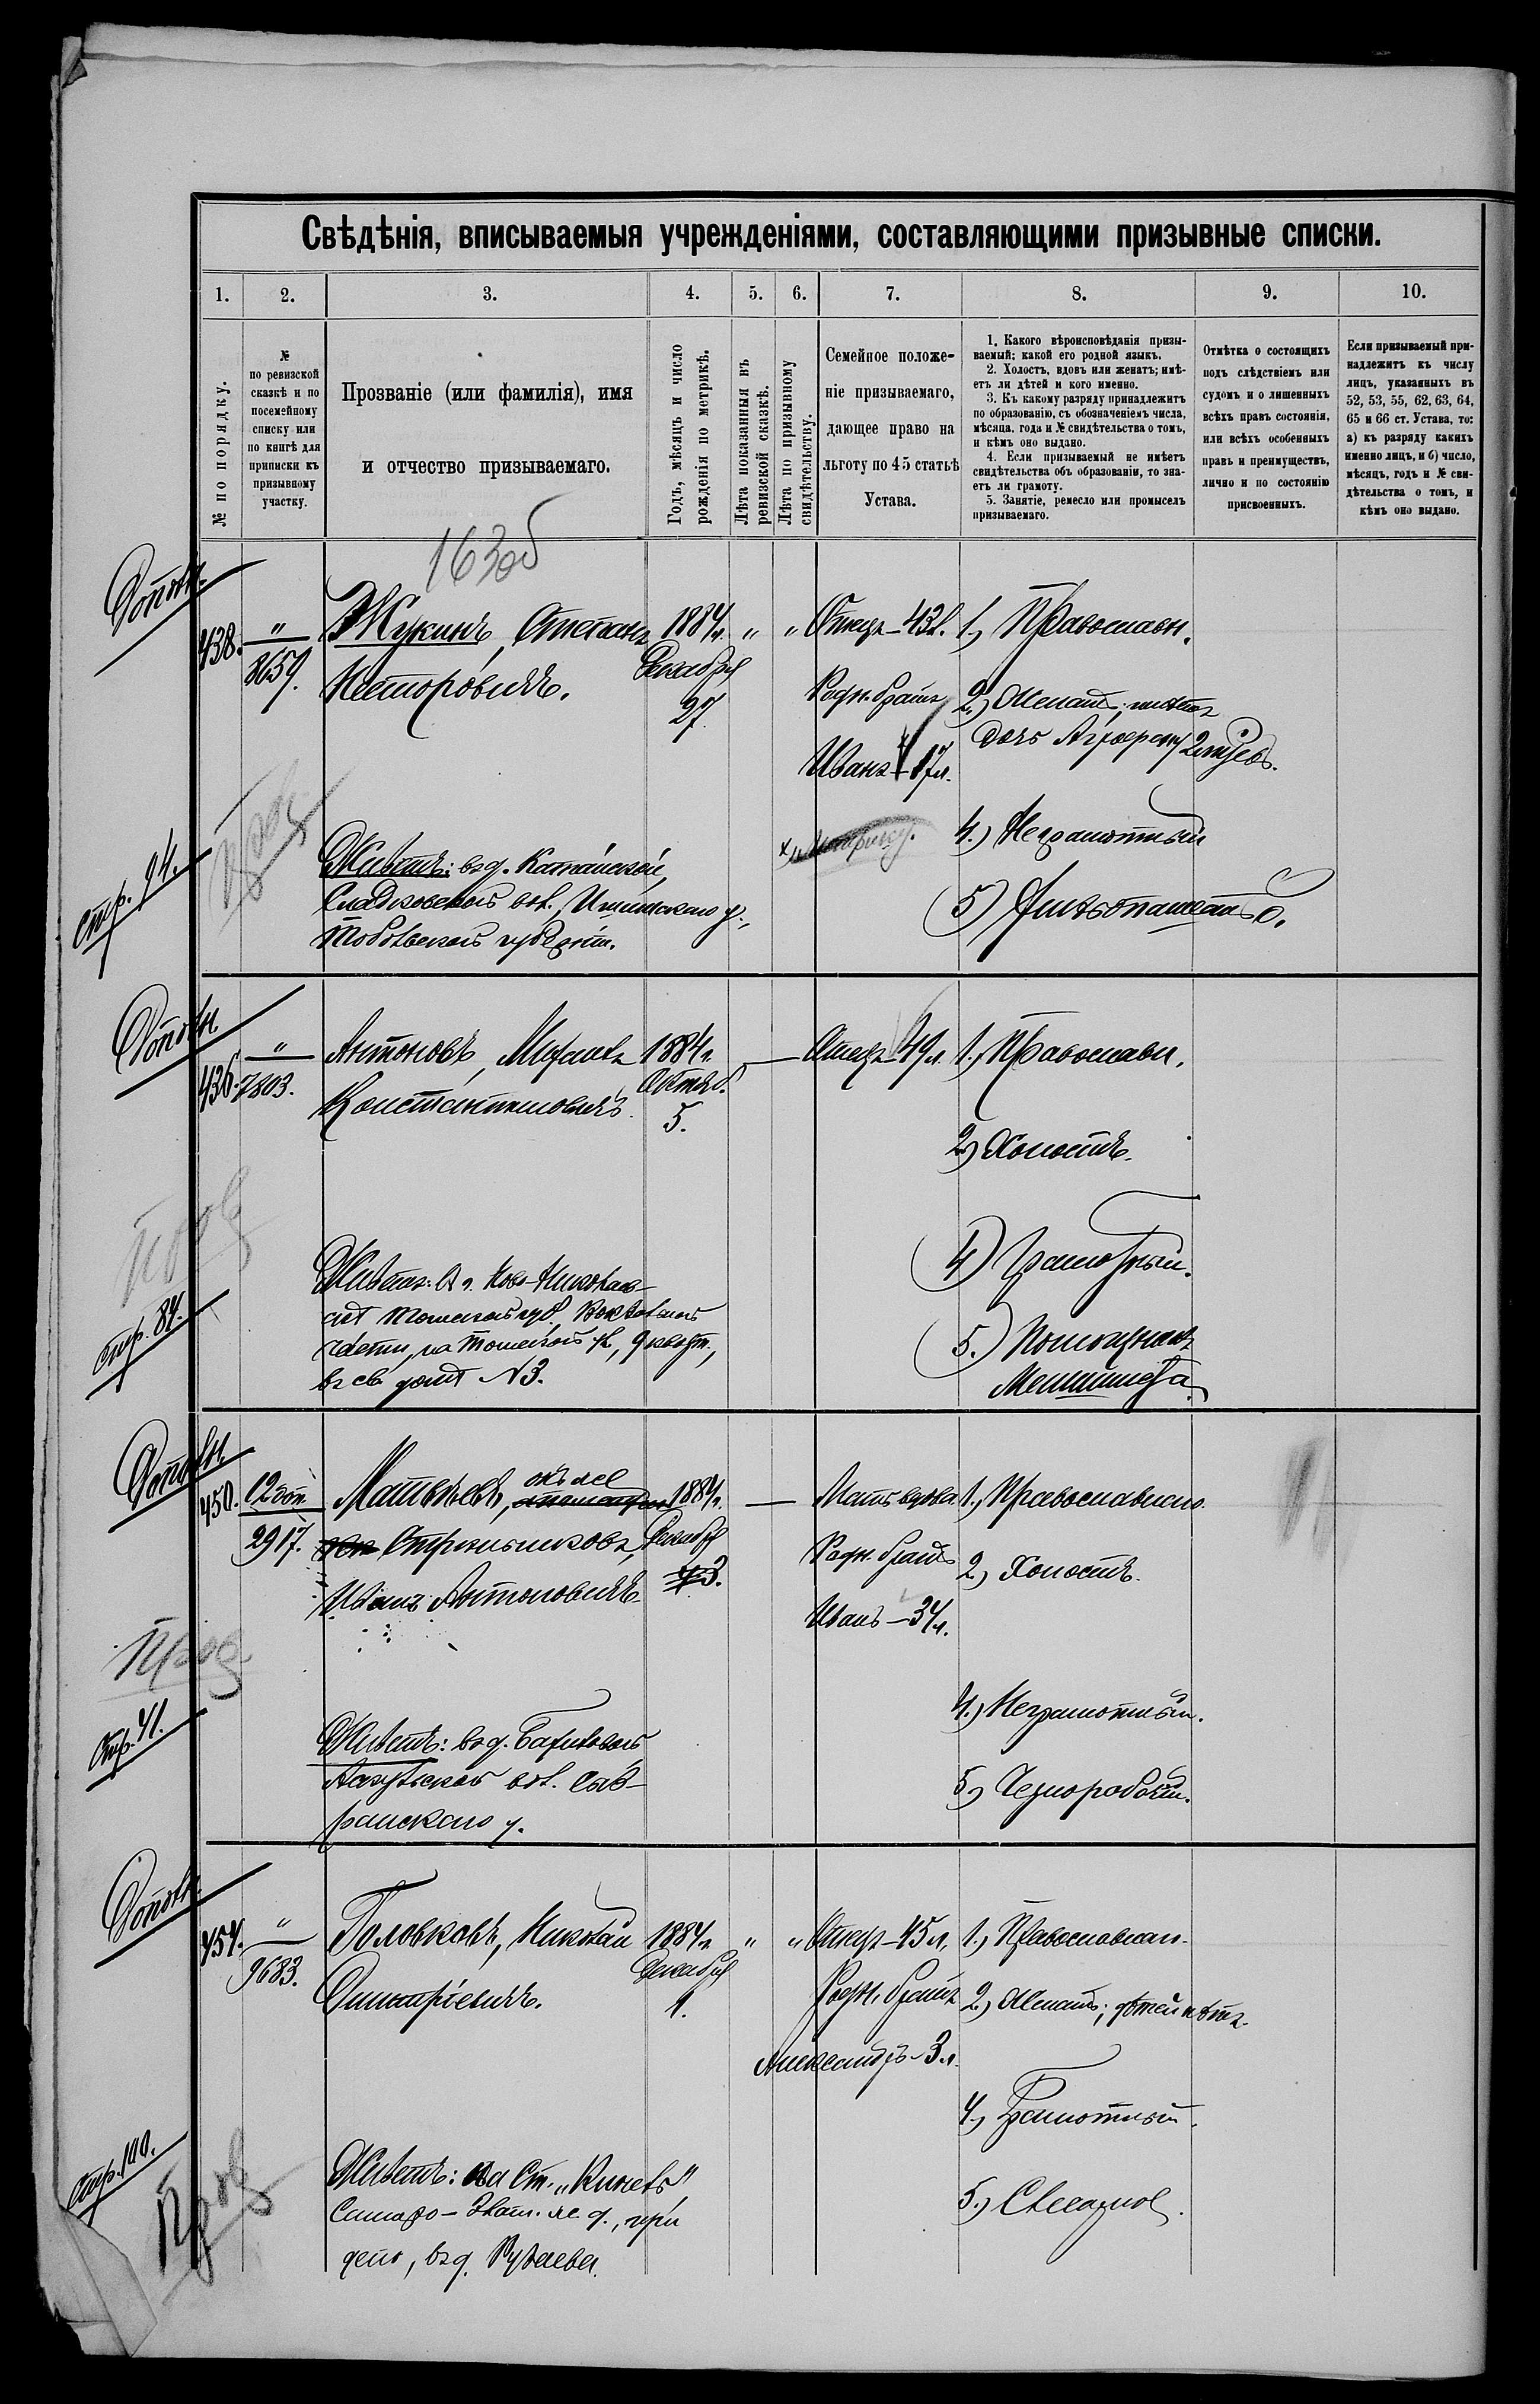 Свѣдѣнія, вписываемыя учрежденіями, составляющими призывные списки.
1. 2. 3. 4. 5. 6. 7. 8. 9. 10.
№ по порядку.
№
по ревизской
сказкѣ и по
посемейному
списку или
по книгѣ для
приписки къ
призывному
участку.
Прозваніе (или фамилія), имя
и отчество призываемаго.
Годъ, мѣсяцъ и число
рожденія по метрикѣ.
Лѣта показанныя въ
ревизской сказкѣ.
Лѣта по призывному
свидѣтельству.
Семейное положе-
ніе призываемаго,
дающее право на
льготу по 45 статьѣ
Устава.
1. Какого вѣроисповѣданія призы-
ваемый; какой его родной языкъ.
2. Холостъ, вдовъ или женатъ; имѣ-
етъ ли дѣтей и кого именно.
3. Къ какому разряду принадлежитъ
по образованію, съ обозначеніемъ числа,
мѣсяца, года и № свидѣтельства о томъ,
и кѣмъ оно выдано.
4. Если призываемый не имѣетъ
свидѣтельства объ образованіи, то зна-
етъ ли грамоту.
5. Занятіе, ремесло или промыселъ
призываемаго.
Отмѣтка о состоящихъ
подъ слѣдствіемъ или
судомъ и о лишенныхъ
всѣхъ правъ состоянія,
или всѣхъ особенныхъ
правъ и преимуществъ,
лично и по состоянію
присвоенныхъ.
Если призываемый при-
надлежитъ къ числу
лицъ, указанныхъ въ
52, 53, 55, 62, 63, 64,
65 и 66 ст. Устава, то:
а) къ разряду какихъ
именно лицъ, и б) число,
мѣсяцъ, годъ и № сви-
дѣтельства о томъ, и
кѣмъ оно выдано.
163об
Дополн.
438. " 8659.
Жукинъ, Степанъ
Несторовичъ.
1884 г.
Декабря
27.
" "
Отецъ – 43 л.
Родн. братъ
Иванъ – 17 л.
1.) Православн.
2.) Женатъ; имѣетъ
дочь
4.) Неграмотный
5)
Стр. 94.
Живетъ: въ д. Катайской,
Сладковской вол., Ишимскаго у.,
Тобольской губерніи.
Дополн.
436. " 7803.
Антоновъ, Михаилъ
Константиновичъ.
1884 г.
Октяб.
5.
Отецъ – 49 л.
1.) Православн.
2.) Холостъ.
4) Грамотный.
5.)
Стр. 84.
Живетъ: въ г. Ново-Николаев-
скѣ Томской губ. Вокзальной
части, на Томской ул., 9 кварт.,
въ св. домѣ № 3.
Дополн.
450. 12 доп. 2917.
Матвѣевъ, онъ же
Стрельниковъ,
Иванъ Антоновичъ
1884 г.
Декабря
3.
Мать вдова
Родн. братъ
Иванъ – 34 л.
1.) Православнаго
2.) Холостъ.
4.) Неграмотный.
5.) Чернорабоч.
Пров
Стр. 41.
Живетъ: въ д.
вол.
у.
Дополн.
454. " 9683.
Головковъ, Николай
Дмитріевичъ.
1884 г.
Декабря
1.
" "
Отецъ – 45 л.
Родн. братъ
Александръ – 3 л.
1.) Православнаго.
2.) Женатъ; дѣтей нѣтъ.
4.) Грамотный.
5.) Слесарное.
Стр. 100.
Пров
Живетъ: на Ст. „Кинель"
Самаро-Злат. ж. д., при
депо, въ д.